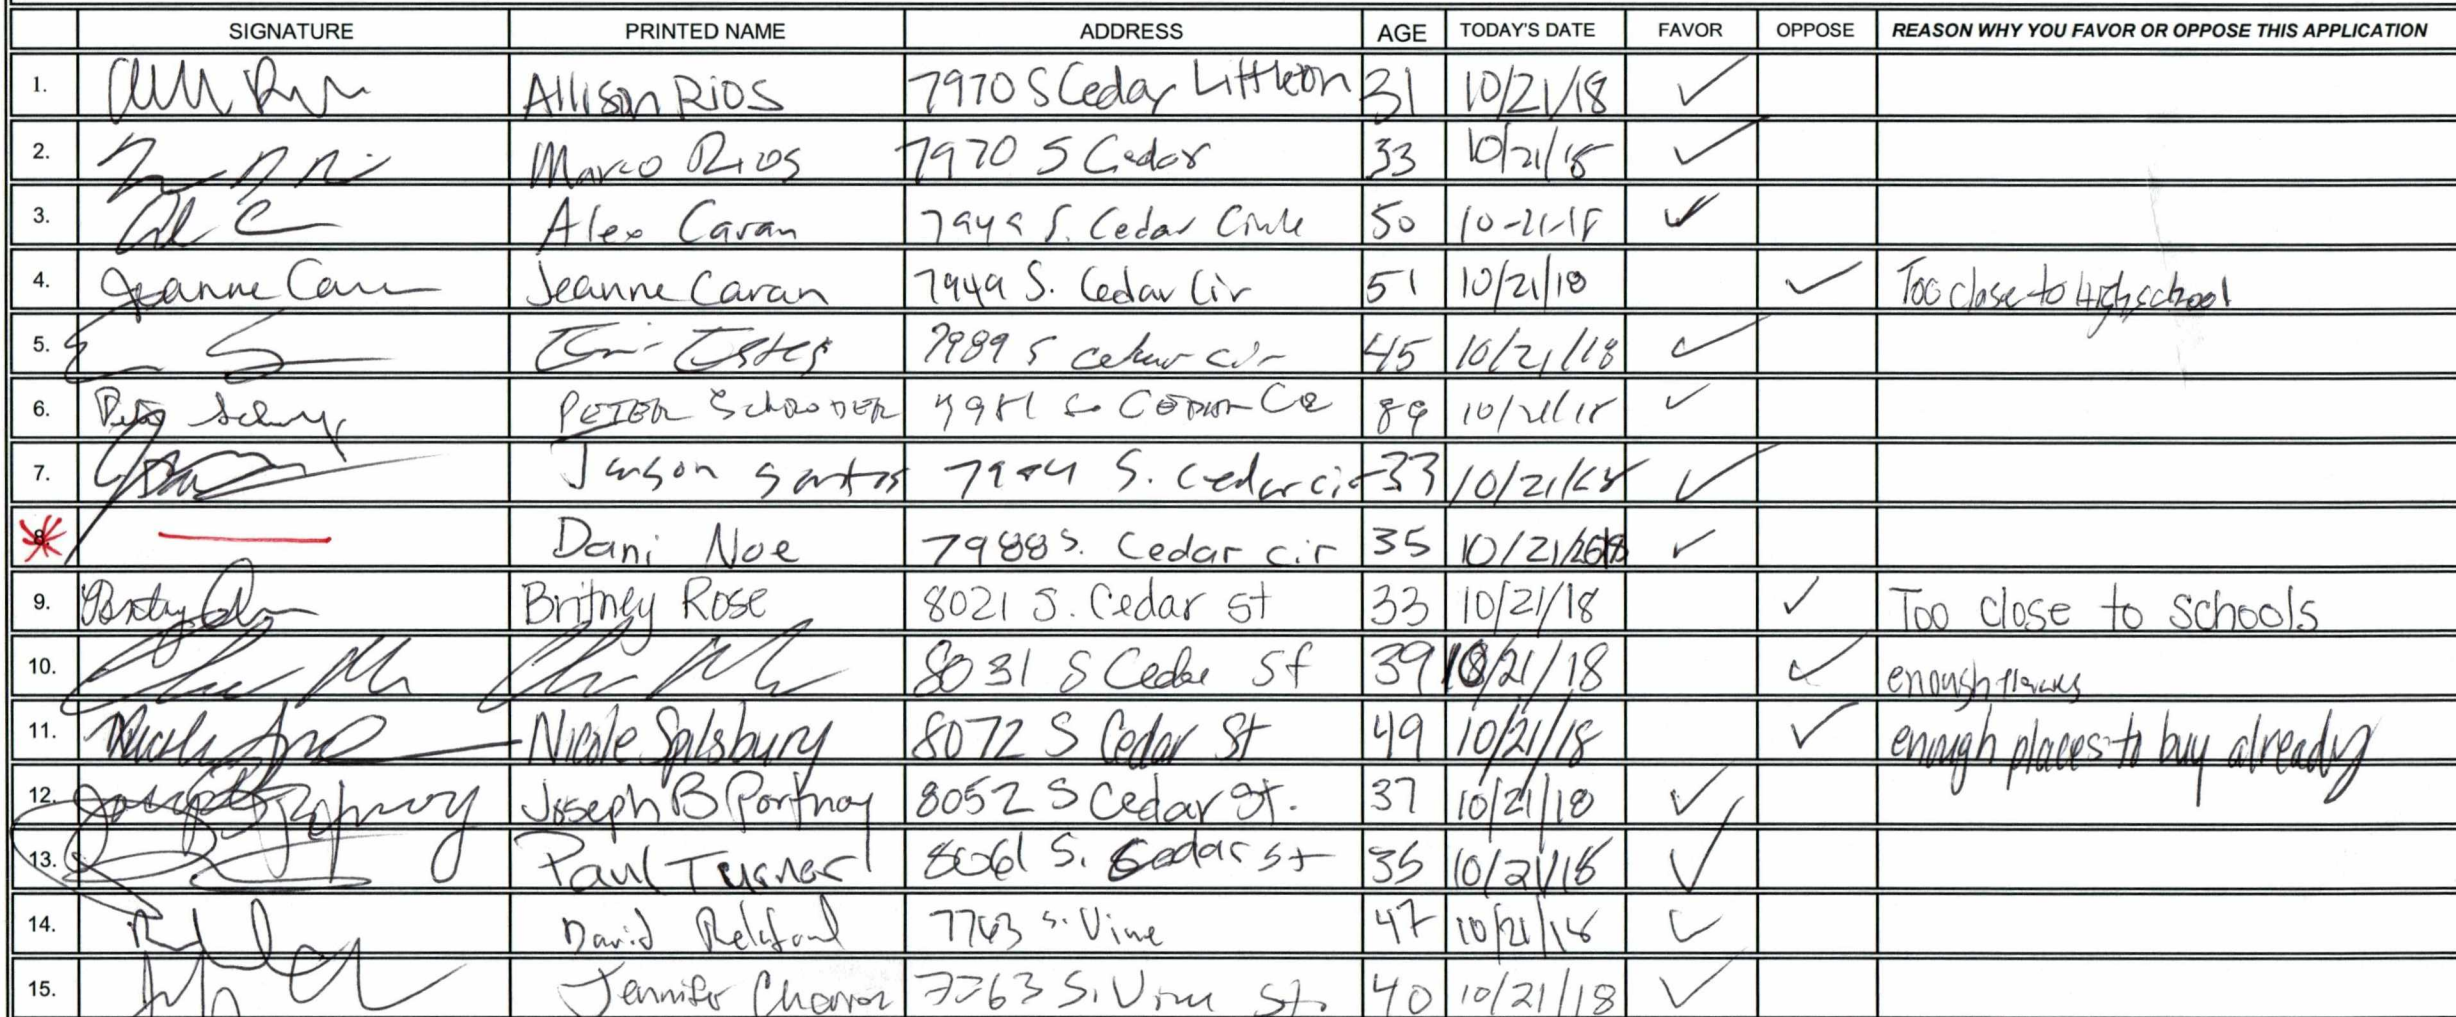 SIGNATURE PRINTED NAME ADDRESS AGE TODAY'S DATE FAVOR OPPOSE REASON WHY YOU FAVOR OR OPPOSE THIS APPLICATION
1. Allison Rios 7970 S Cedar Littleton 31 10/21/18 ✓
2. Marco Rios 7970 S Cedar 33 10/21/18 ✓
3. Alex Caran 7949 S. Cedar Circle 50 10-21-18 ✓
4. Jeanne Caran Jeanne Caran 7949 S. Cedar Cir 51 10/21/18 ✓ Too close to High school
5. Estes 7989 S cedar cir 45 10/21/18 ✓
6. PETER SCHRODER S CEDAR 89 10/21/18 ✓
7. Santos S. Cedar cir 33 10/21/18 ✓
8. Dani Noe 7988 S. Cedar cir 35 10/21/2018 ✓
9. Britney Rose 8021 S. Cedar st 33 10/21/18 ✓ Too close to schools
10. 8031 S Cedar St 39 10/21/18 ✓ enough
11. Nicole Spilsbury 8072 S Cedar St 49 10/21/18 ✓ enough places to buy already
12. Joseph B Portnoy 8052 S Cedar St. 37 10/21/18 ✓
13. Paul Turner 8061 S. Cedar st 35 10/21/18 ✓
14. David Relaford 7763 S. Vine 47 10/21/18 ✓
15. Jennifer Chavez 7763 S. Vine St. 40 10/21/18 ✓